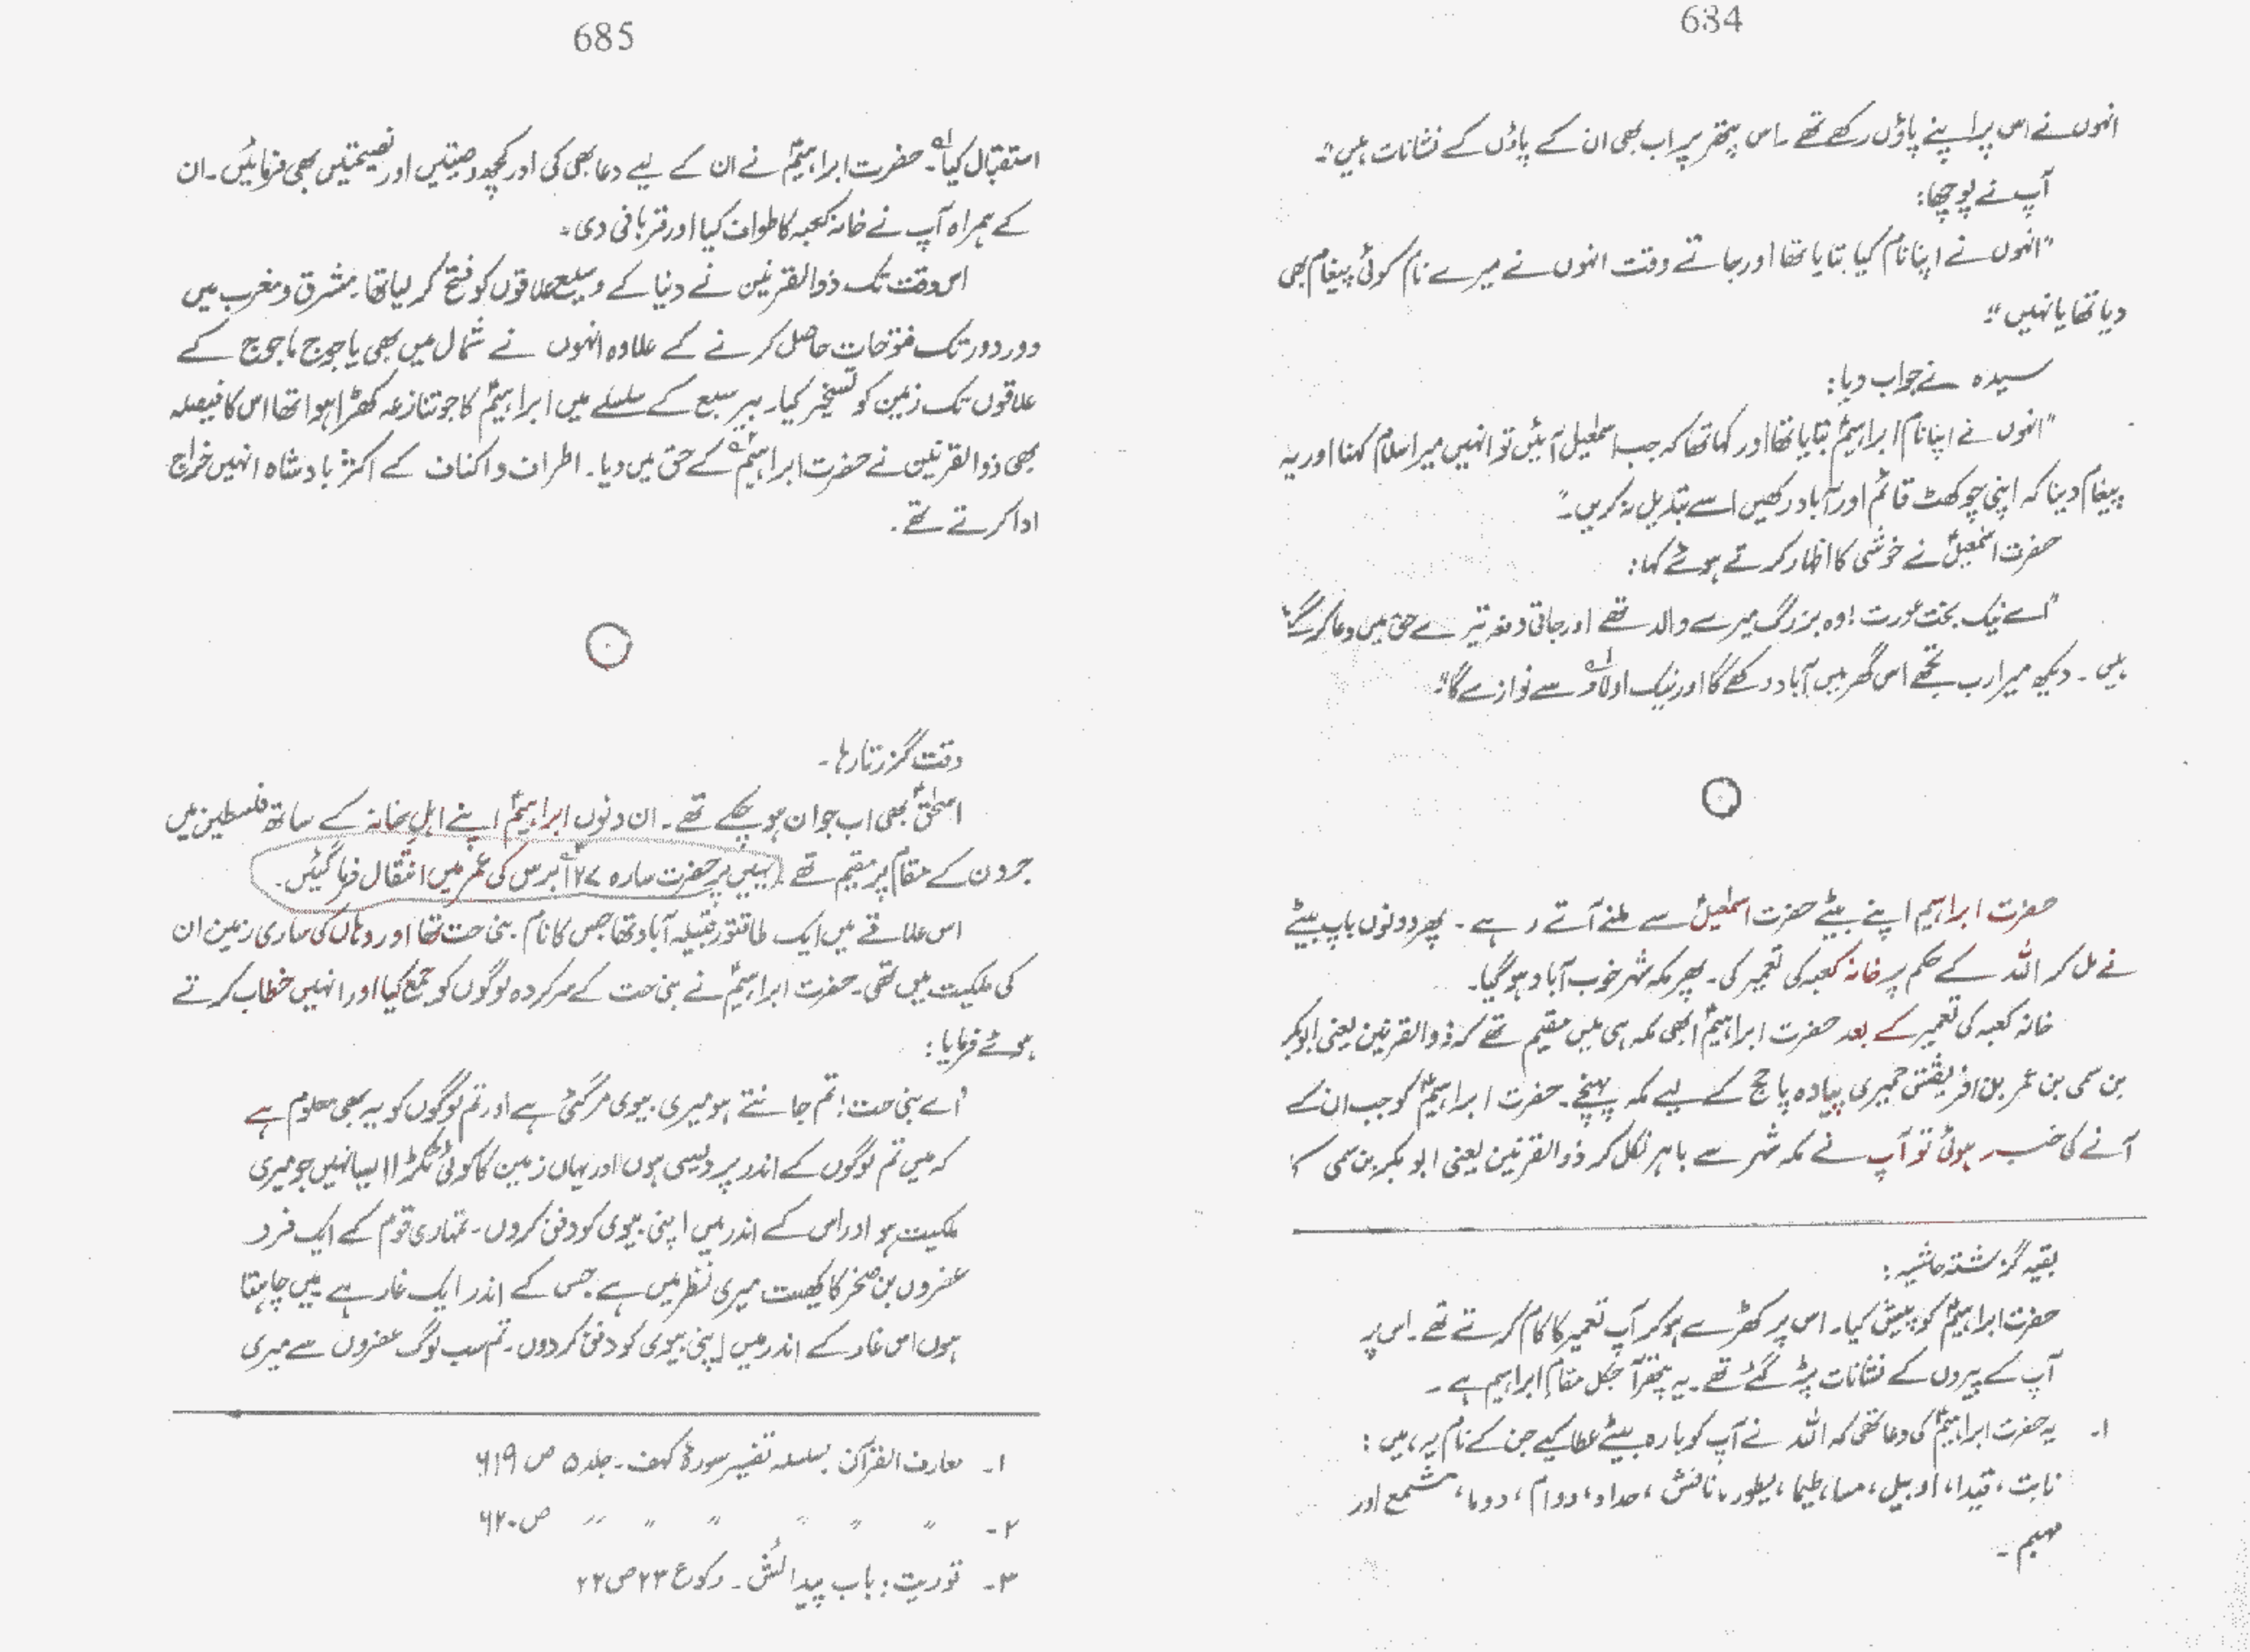 684
انہوں نے اس پر اپنے پاؤں رکھے تھے ۔ اس پتھر پر اب بھی ان کے پاؤں کے نشانات ہیں"۔
آپ نے پوچھا:
"انہوں نے اپنا نام کیا بتایا تھا اور جاتے وقت انہوں نے میرے نام کوئی پیغام بھی
دیا تھا یا نہیں"؟
سیدہ نے جواب دیا:
"انہوں نے اپنا نام ابراہیمؑ بتایا تھا اور کہا تھا کہ جب اسمٰعیلؑ آئیں تو انہیں میرا سلام کہنا اور یہ
پیغام دینا کہ اپنی چوکھٹ قائم اور آباد رکھیں اسے تبدیل نہ کریں۔"
حضرت اسمٰعیلؑ نے خوشی کا اظہار کرتے ہوئے کہا:
"اے نیک بخت عورت! وہ بزرگ میرے والد تھے اور جاتی دفعہ تیرے حق میں دعا کر گئے
ہیں ۔ دیکھ میرا رب تجھے اس گھر میں آباد رکھے گا اور نیک اولاد۱ سے نوازے گا"۔
حضرت ابراہیم اپنے بیٹے حضرت اسمٰعیلؑ سے ملنے آتے رہے ۔ پھر دونوں باپ بیٹے
نے مل کر اللہ کے حکم پر خانہ کعبہ کی تعمیر کی۔ پھر مکہ شہر خوب آباد ہو گیا۔
خانہ کعبہ کی تعمیر کے بعد حضرت ابراہیمؑ ابھی مکہ ہی میں مقیم تھے کہ ذوالقرنین یعنی ابوبکر
بن سمی بن عمر بن افریقش حمیری پیادہ پا حج کے لیے مکہ پہنچے۔ حضرت ابراہیمؑ کو جب ان کے
آنے کی خبر ہوئی تو آپ نے مکہ شہر سے باہر نکل کر ذوالقرنین یعنی ابوبکر بن سمی کا
بقیہ گزشتہ حاشیہ:
حضرت ابراہیمؑ کو پیش کیا۔ اس پر کھڑے ہو کر آپ تعمیر کا کام کرتے تھے ۔ اس پر
آپ کے پیروں کے نشانات پڑ گئے تھے ۔ یہ پتھر آجکل مقام ابراہیم ہے ۔
۱۔ یہ حضرت ابراہیمؑ کی دعا تھی کہ اللہ نے آپ کو بارہ بیٹے عطا کیے جن کے نام یہ ہیں:
نابت، قیدا، اوبیل، مسا، طیما، یطور، نافش، حداد، دوام، دوما، مشمع اور
مبسم ۔
685
استقبال کیا۱۔ حضرت ابراہیمؑ نے ان کے لیے دعا بھی کی اور کچھ وصیتیں اور نصیحتیں بھی فرمائیں ۔ ان
کے ہمراہ آپ نے خانہ کعبہ کا طواف کیا اور قربانی دی۔
اس وقت تک ذوالقرنین نے دنیا کے وسیع علاقوں کو فتح کر لیا تھا۔ مشرق و مغرب میں
دور دور تک فتوحات حاصل کرنے کے علاوہ انہوں نے شمال میں بھی یاجوج ماجوج کے
علاقوں تک زمین کو تسخیر کیا۔ بیر سبع کے سلسلے میں ابراہیمؑ کا جو تنازعہ کھڑا ہوا تھا اس کا فیصلہ
بھی ذوالقرنین نے حضرت ابراہیمؑ۲ کے حق میں دیا۔ اطراف و اکناف کے اکثر بادشاہ انہیں خراج
ادا کرتے تھے ۔
وقت گزرتا رہا ۔
اسحٰقؑ بھی اب جوان ہو چکے تھے ۔ ان دنوں ابراہیمؑ اپنے اہل خانہ کے ساتھ فلسطین میں
جرون کے مقام پر مقیم تھے ۔ یہیں پر حضرت سارہ ۱۲۷ برس کی عمر میں انتقال فرما گئیں۔
اس علاقے میں ایک طاقتور قبیلہ آباد تھا جس کا نام بنی حت تھا اور وہاں کی ساری زمین ان
کی ملکیت میں تھی۔ حضرت ابراہیمؑ نے بنی حت کے سرکردہ لوگوں کو جمع کیا اور انہیں خطاب کرتے
ہوئے فرمایا:
"اے بنی حت! تم جانتے ہو میری بیوی مر گئی ہے اور تم لوگوں کو یہ بھی معلوم ہے
کہ میں تم لوگوں کے اندر پردیسی ہوں اور یہاں زمین کا کوئی ٹکڑا ایسا نہیں جو میری
ملکیت ہو اور اس کے اندر میں اپنی بیوی کو دفن کروں ۔ تمہاری قوم کے ایک فرد
عفرون بن صخر کا کھیت میری نظر میں ہے جس کے اندر ایک غار ہے میں چاہتا
ہوں اس غار کے اندر میں اپنی بیوی کو دفن کر دوں ۔ تم سب لوگ عفرون سے میری
۱۔ معارف القرآن بسلسلہ تفسیر سورۂ کہف ۔ جلد ۵ ص ۶۱۹
۲۔ " " " " " " ص ۶۲۰
۳۔ توریت: باب پیدائش ۔ رکوع ۲۳ ص ۲۲